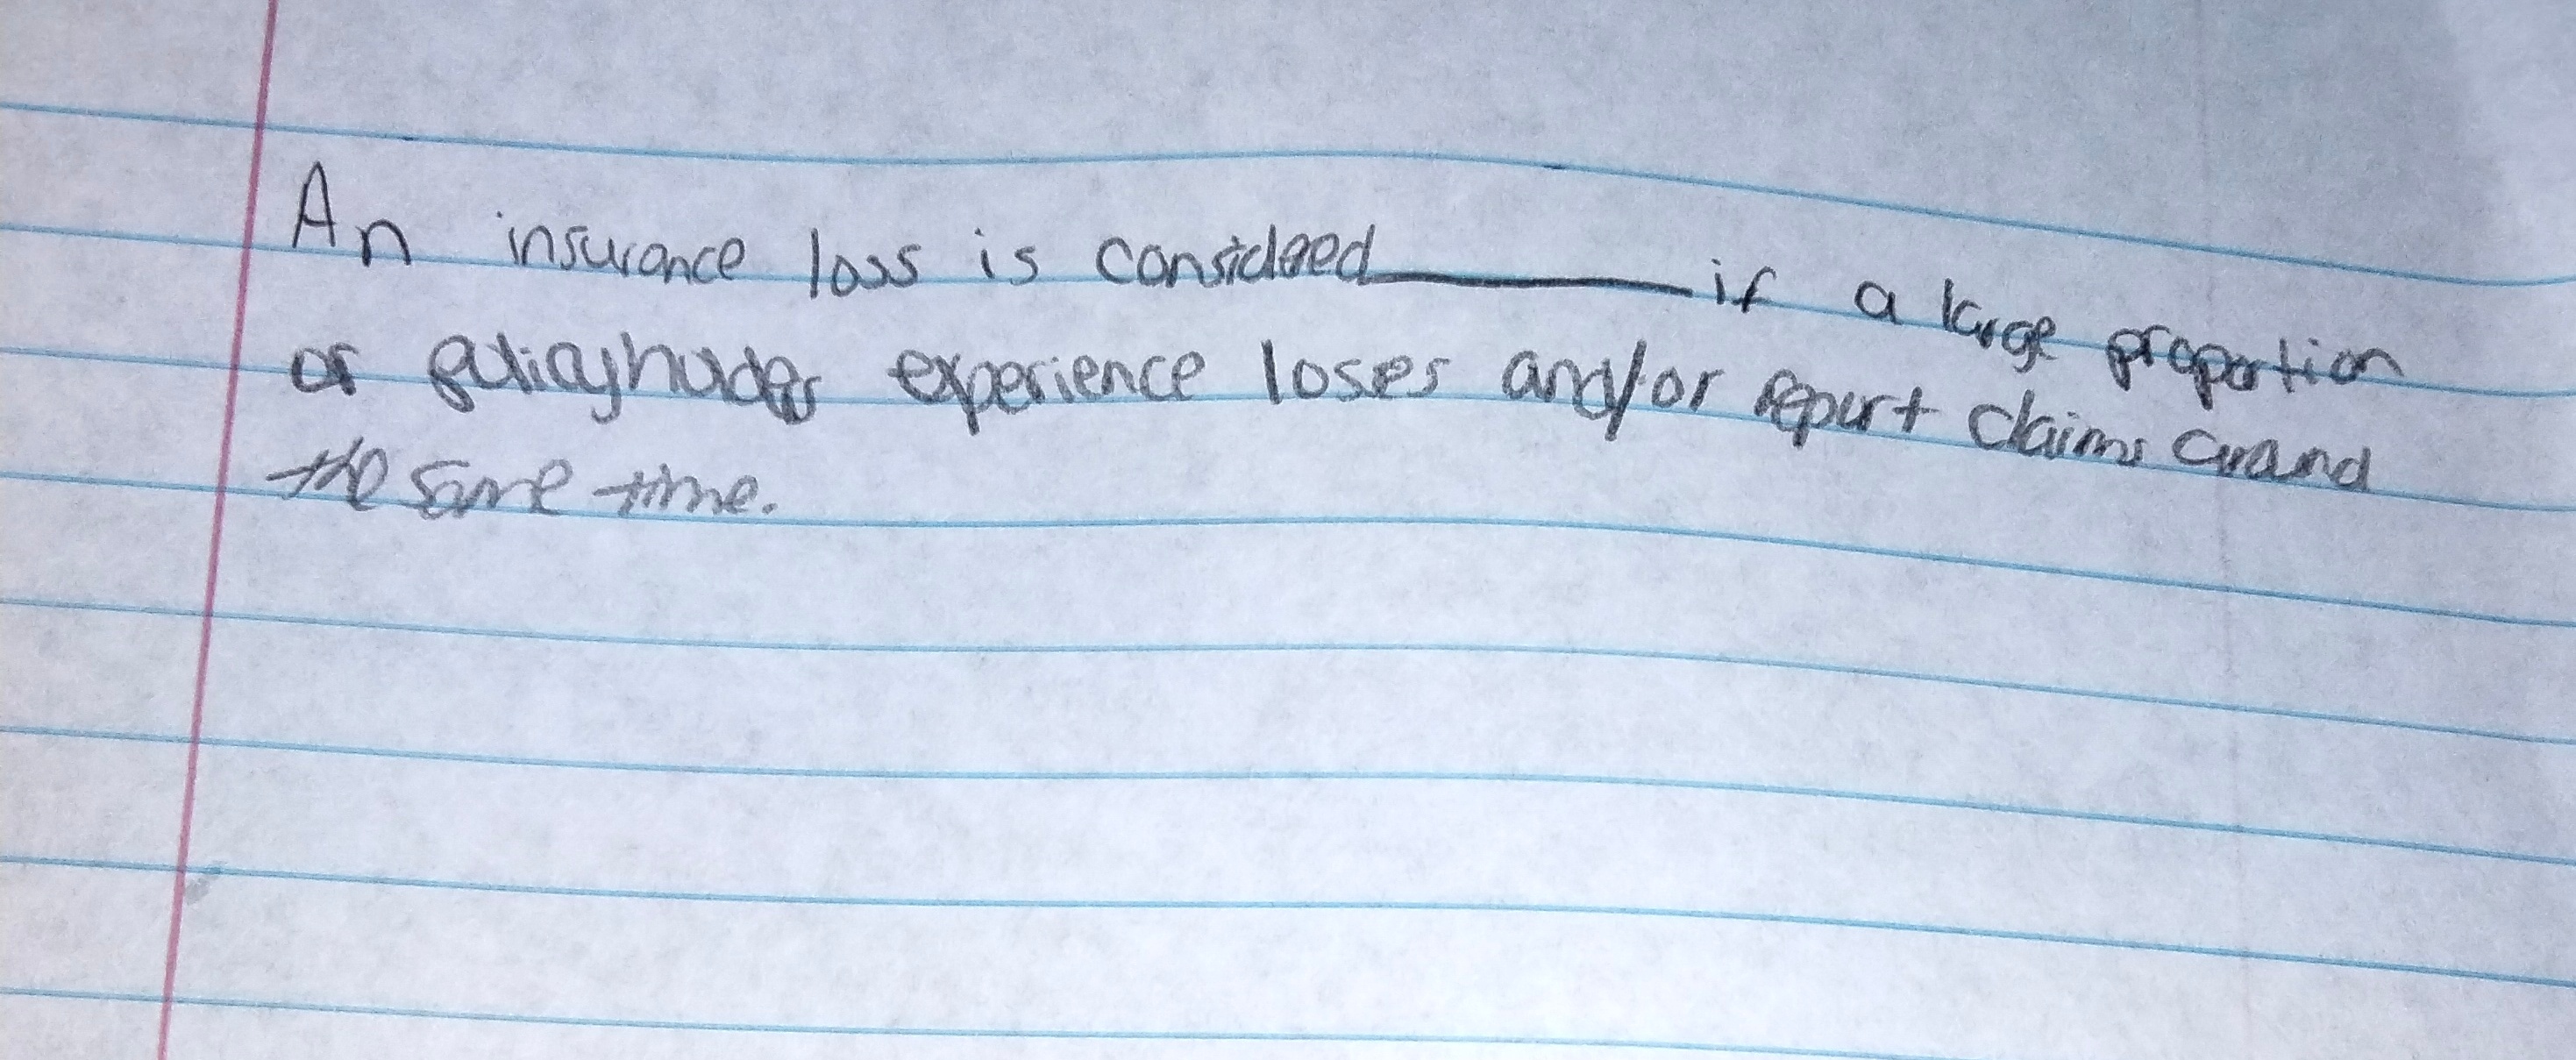 An insurance loss is considered________if a large proportion
of policyholder experience loses and/or report claims around
the same time.